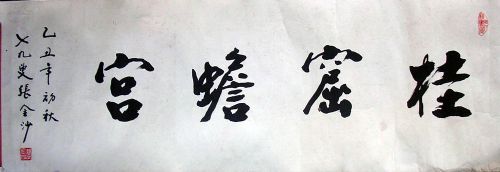 桂窟蟾宫
乙丑年初秋
七九叟张金沙